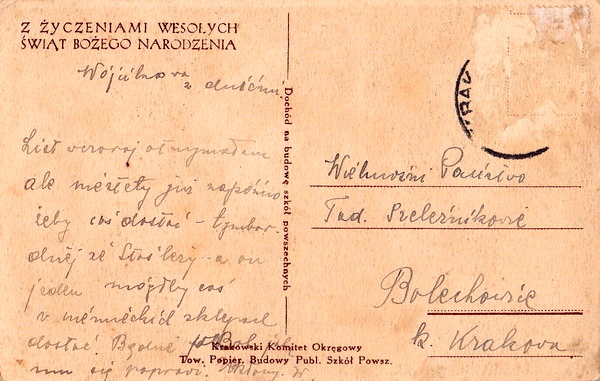 Z ŻYCZENIAMI WESOŁYCH
ŚWIĄT BOŻEGO NARODZENIA
Wójcikowa
z dziećmi
List wczoraj otrzymałam
ale niestety już zapóźno
żeby coś dostać - tymbar-
dziej że Staś leży - a on
jeden mógłby coś
w niemieckich sklepach
dostać. Będzie
mu się poprawi.
Dochód na budowę szkół powszechnych
KRAK
Wielmożni Państwo
Tad. Szeleźnikowie
Bolechowice
k. Krakowa
Krakowski Komitet Okręgowy
Tow. Popier. Budowy Publ. Szkół Powsz.